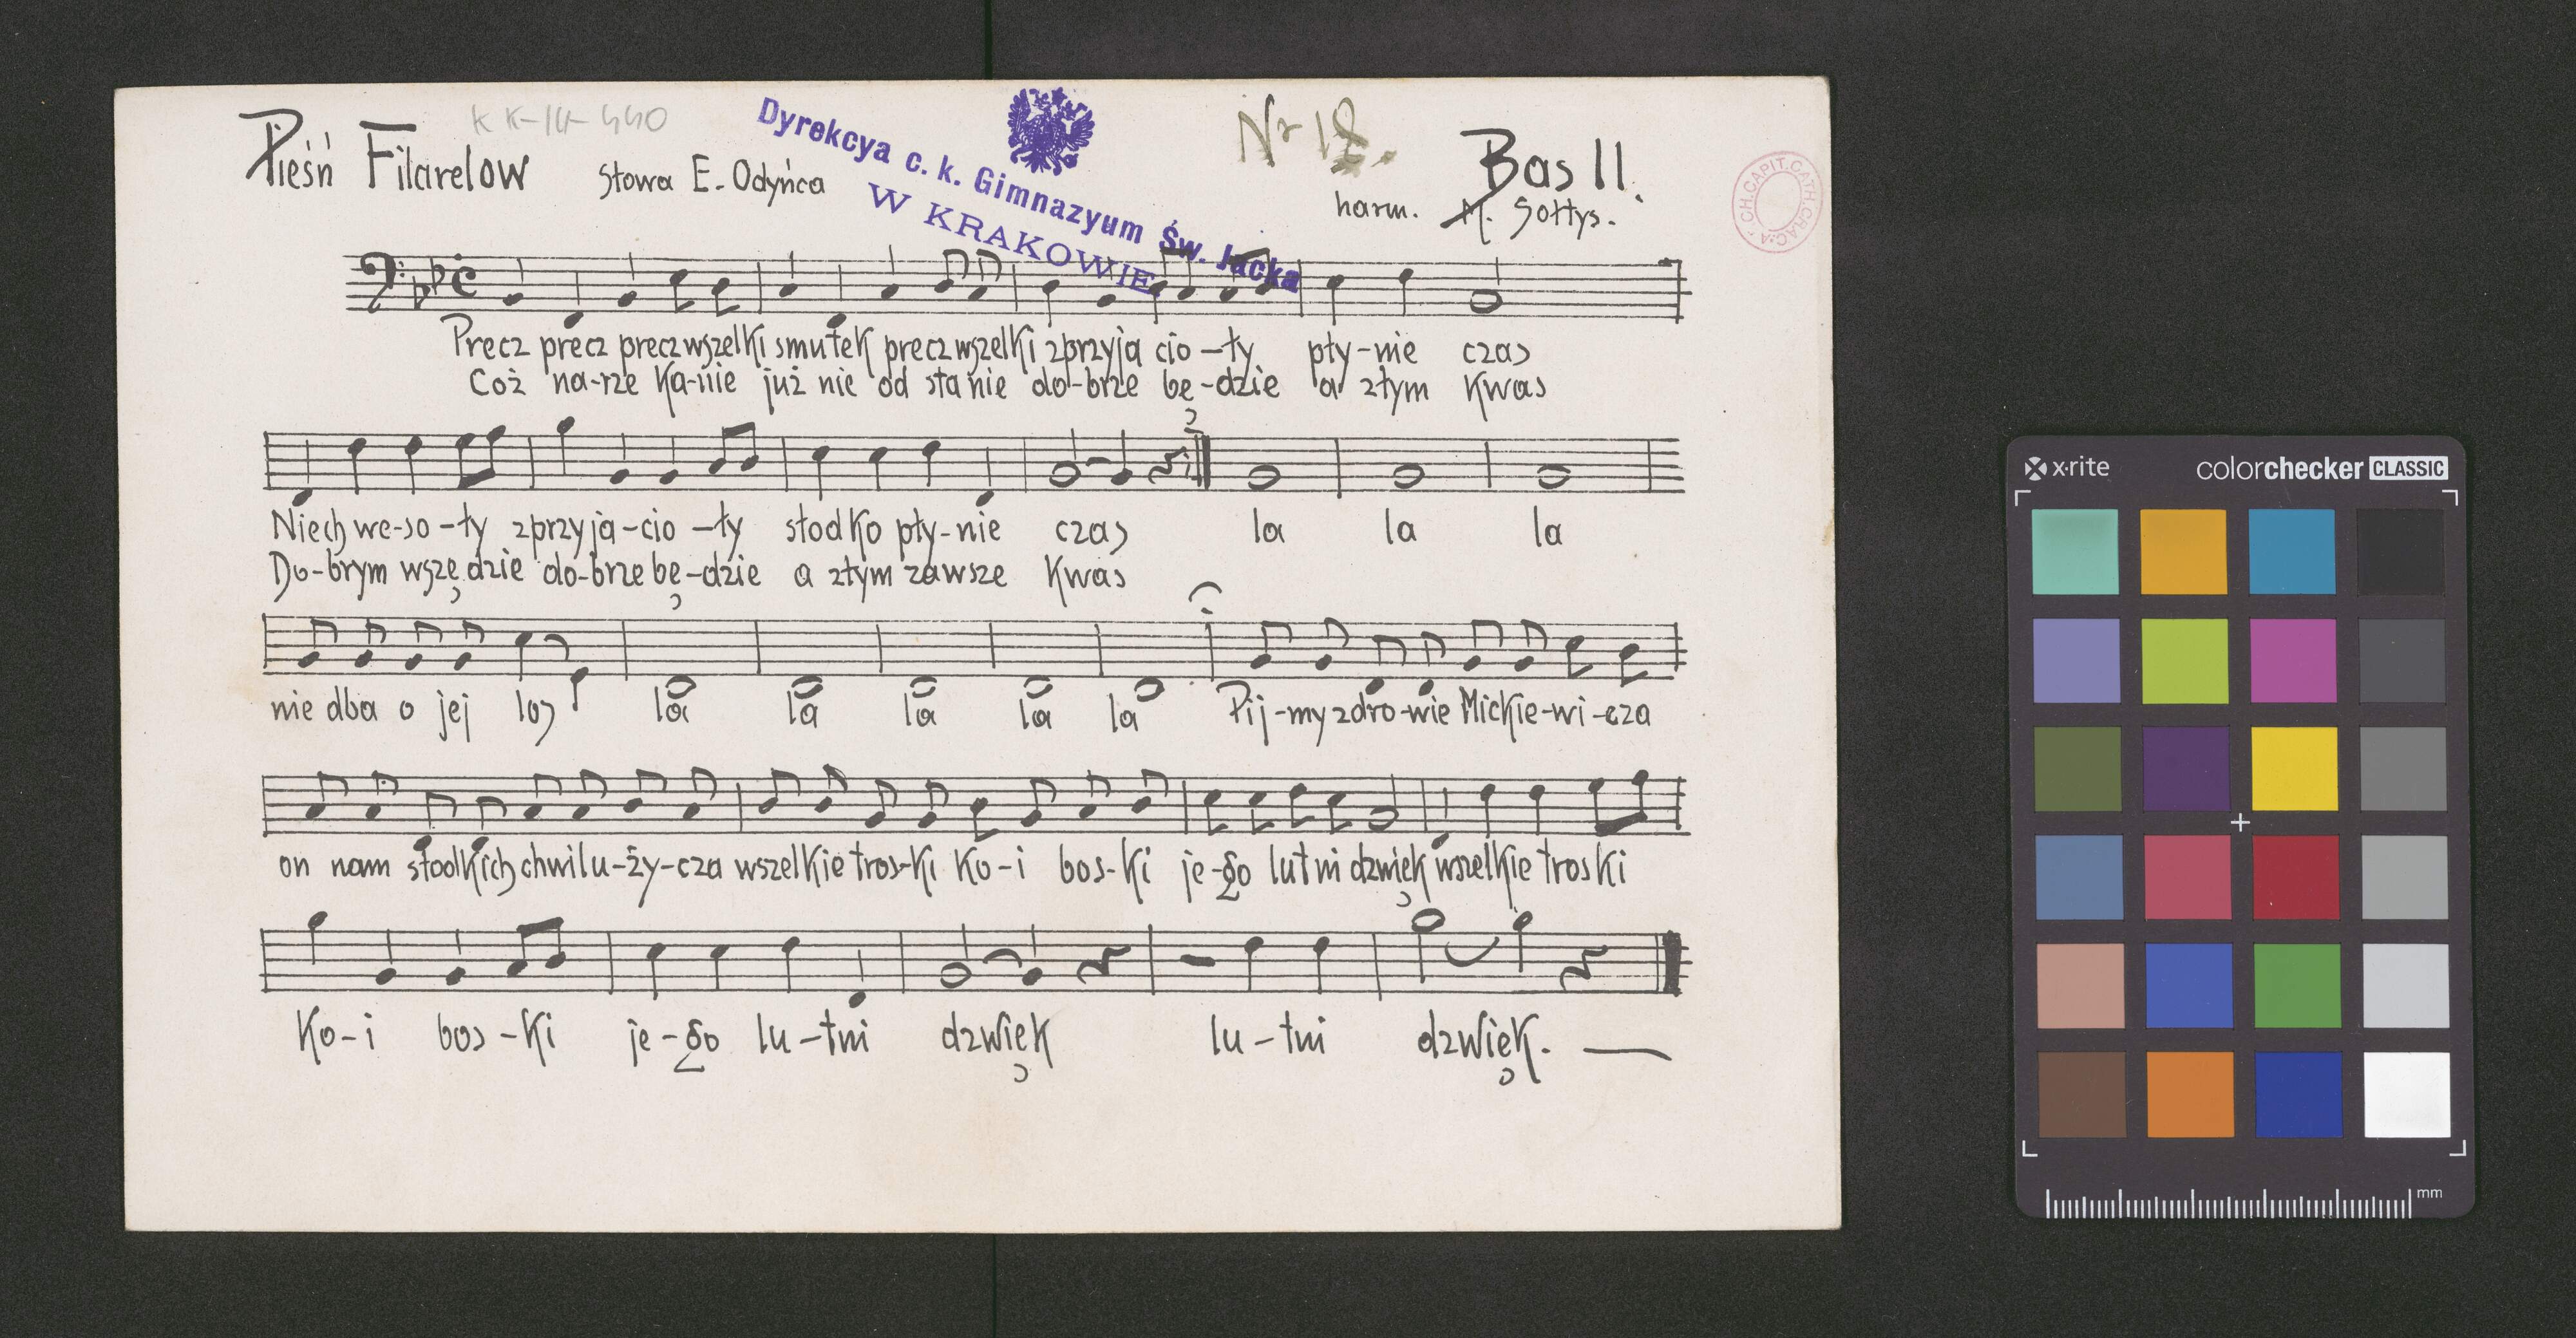 KK-IV-440
Pieśń Filaretow słowa E. Odyńca
Dyrekcya c. k. Gimnazyum Św. Jacka
W KRAKOWIE.
Nr 18.
Bas II.
harm. M. Sołtys.
Precz precz precz wszelki smutek precz wszelki z przyja cio-ły pły-nie czas
Coż na-rze ka-nie już nie od sta nie do-brze bę-dzie a złym kwas
Niech we-so-ły z przyja-cio-ły słodko pły-nie czas la la la
Do-brym wszę dzie do-brze bę-dzie a złym zawsze kwas
nie dba o jej los la la la la la Pij-my zdro-wie Mickie-wi-cza
on nam słodkich chwil u-ży-cza wszelkie tros-ki ko-i bos-ki je-go lutni dzwięk wszelkie troski
ko-i bos-ki je-go lu-tni dzwięk lu-tni dzwięk.
x·rite colorchecker CLASSIC
mm